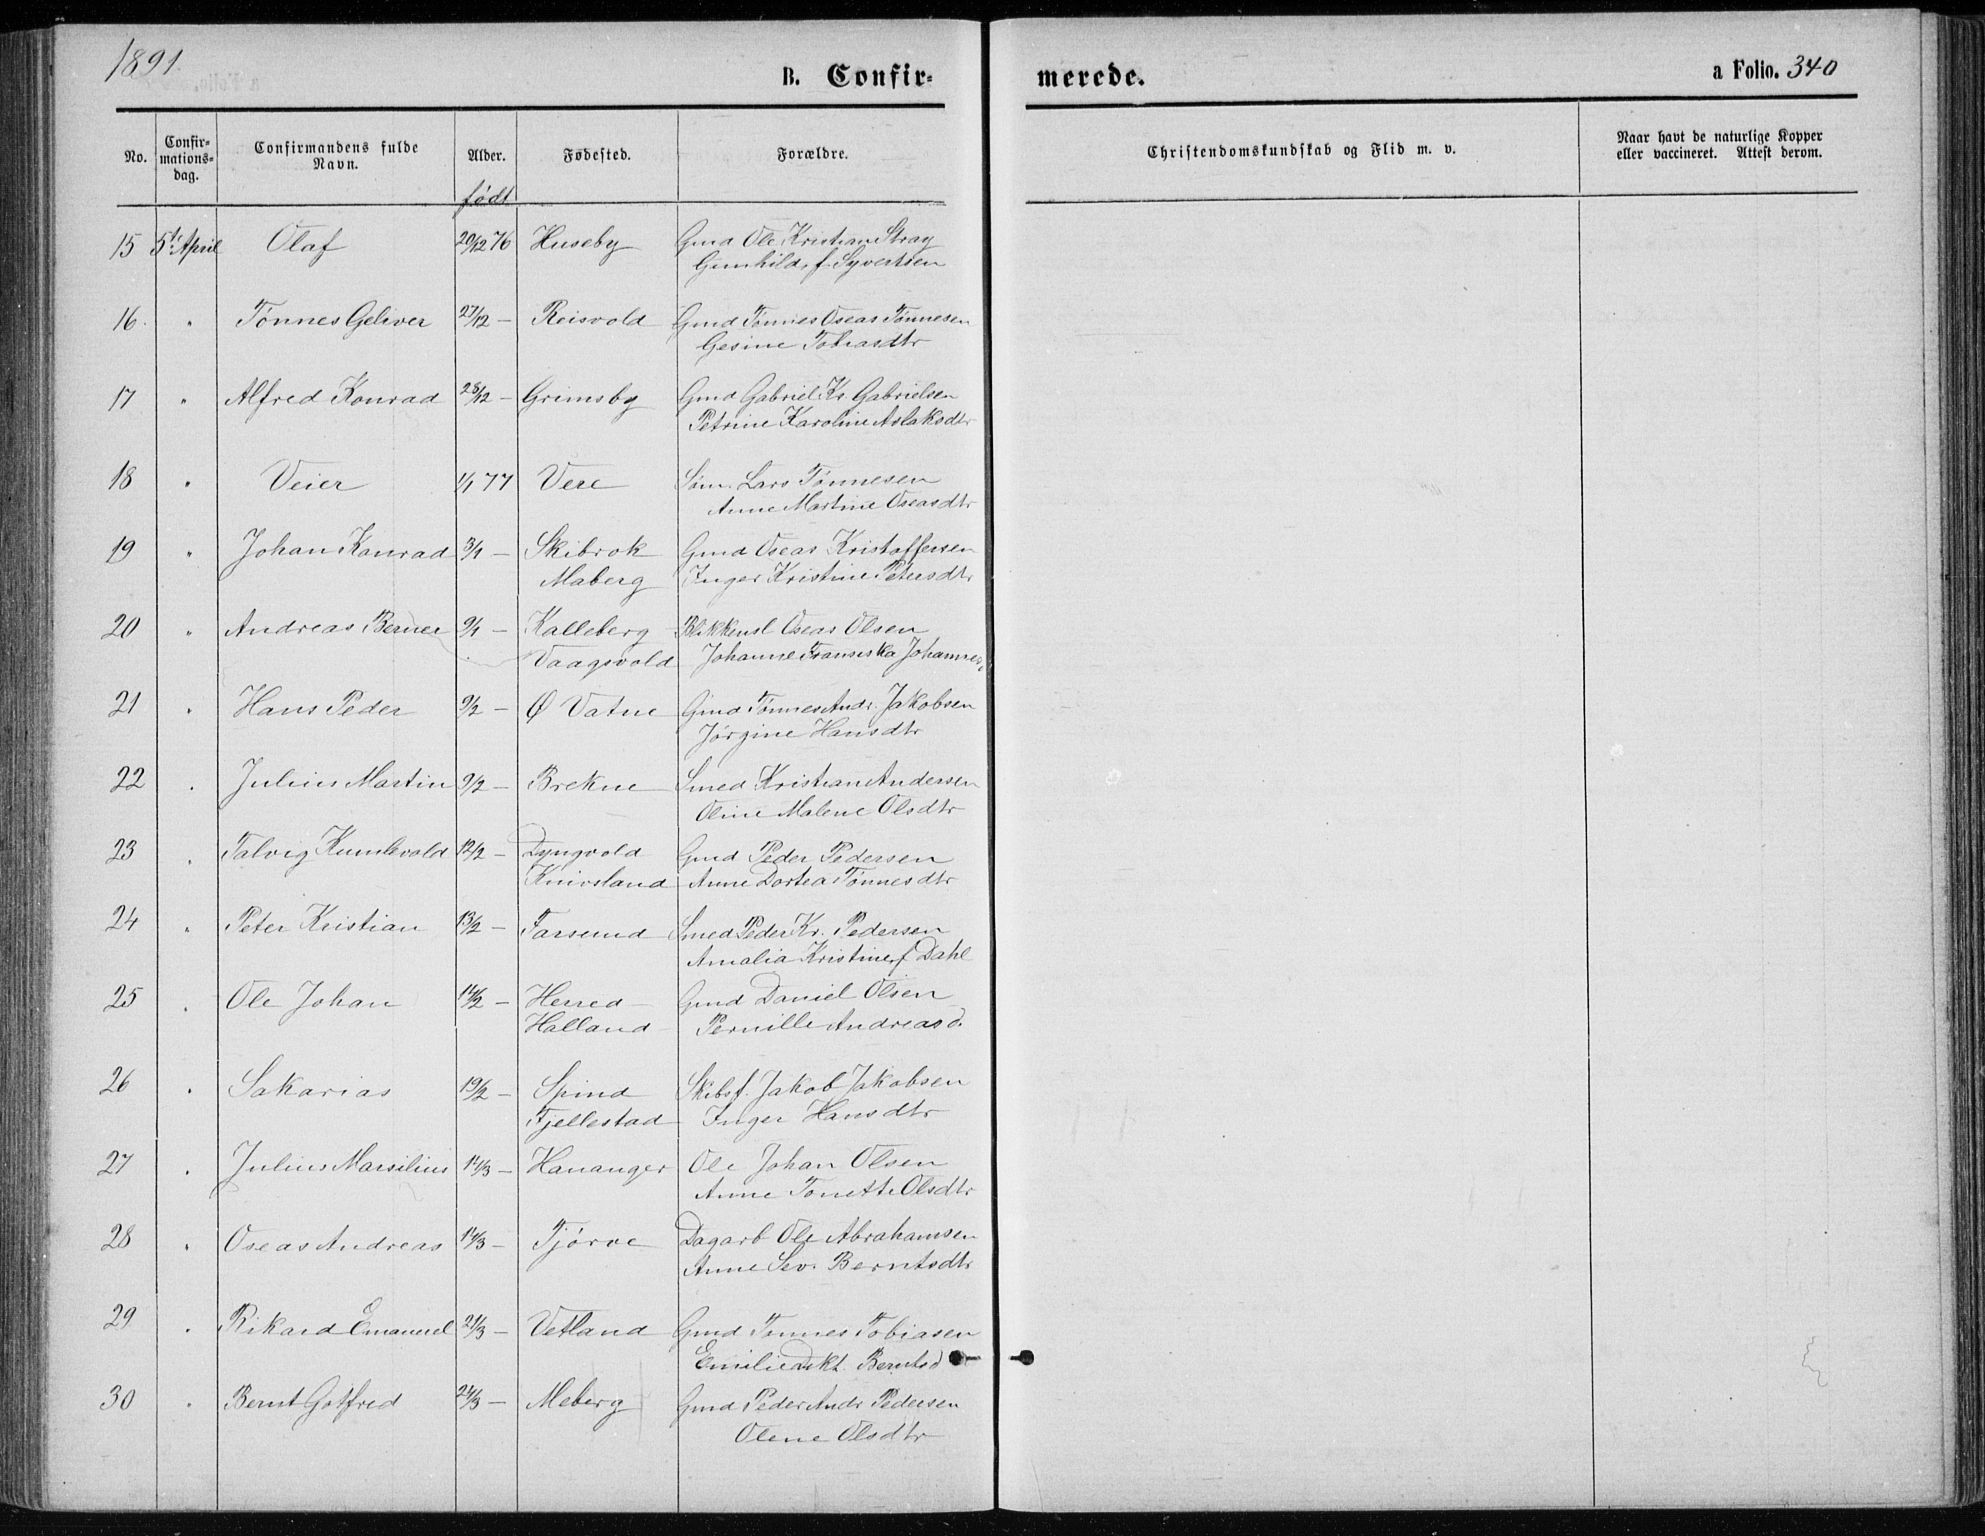 1891
B. Confir- merede. a Folio. 340
No. Confir-mations-dag. Confirmandens fulde Navn. Alder. Fødested. Forældre. Christendomskundskab og Flid m. v. Naar havt de naturlige Kopper eller vaccineret. Attest derom.
født
15 5te April Olaf 20/12 76 Huseby Gmd Ole Kristian Stray
Gunhild, f. Syvertsen
16. " Tønnes Geliver 27/12 — Reisvold Gmd Tønnes Oseas Tønnesen
Gesine Tobiasdtr
17 " Alfred Konrad 28/12 — Grimsby Gmd Gabriel Kr. Gabrielsen
Petrine Karoline Aslaksdtr
18 " Veier 1/1 77 Vere Søm. Lars Tønnesen
Anne Martine Oseasdtr
19 " Johan Konrad 3/1 — Skibrok Gmd Oseas Kristoffersen
Maberg Inger Kristine Petersdtr
20 " Andreas Berner 9/1 — Kalleberg Blikkensl Oseas Olsen
Vaagsvold Johanne Fransiska Johannes
21 " Hans Peder 9/2 — Ø Vatne Gmd Tønnes Andr. Jakobsen
Jørgine Hansdtr
22 " Julius Martin 9/2 — Brekne Smed Kristian Andersen
Oline Malene Olsdtr
23 " Talvig Kumlevold 12/2 — Dyngvold Gmd Peder Pedersen
Knivsland Anne Dortea Tønnesdtr
24 " Peter Kristian 13/2 — Farsund Smed Peder Kr. Pedersen
Amalia Kristine f Dahl
25 " Ole Johan 14/2 — Herred Gmd Daniel Olsen
Halland Pernille Andreasd.
26 " Sakarias 19/2 — Spind Skibsf. Jakob Jakobsen
Fjellestad Inger Hansdtr
27 " Julius Marsilius 14/3 — Hananger Ole Johan Olsen
Anne Tonette Olsdtr
28 " Oseas Andreas 14/3 — Tjørve Dagarb Ole Abrahamsen
Anne Sev. Berntsdtr
29 " Rikard Emanuel 21/3 — Vetland Gmd Tønnes Tobiasen
Emilie Berntsd
30 " Bernt Gotfred 24/3 — Meberg Gmd Peder Andr Pedersen
Olene Olsdtr